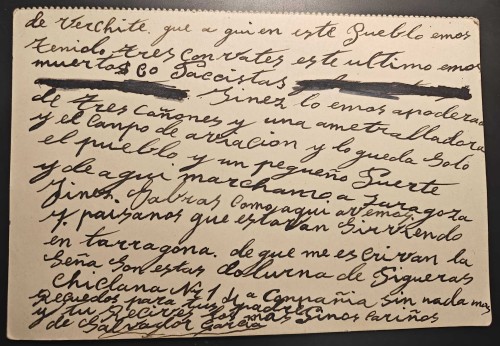 de verchite. que a qui en este Pueblo emos
tenido tres convates este ultimo emos
muertos 60 Faccistas
Ginez lo emos apoderado
de tres cañones y una ametralladora
y el canpo de aviacion y lo queda solo
el pueblo, y un pequeño fuerte
y de aqui marchamo a Zaragoza
Jinez. Sabras como aqui avemos
y. paisanos que estavan Sirviendo
en tarragona. de que me escrivan la
Seña Son estas colurna de Figueras
Chiclana Nº 1 Compañia sin nada mas
Recuedos para tus
y tu Recives los mas Sinos cariños
de Salvador Garcia